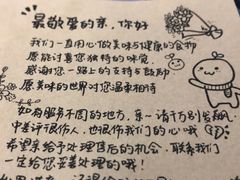 最敬爱的亲，你好
我们一直用心做美味与健康的食物
愿能讨喜您独特的味觉
感谢您一路上的支持与鼓励
愿美味的世界对您温柔相待
如有服务不周的地方，亲～请千万别发飙
中差评很伤人，也很伤我们的心哦
希望亲给予处理售后的机会，联系我们
一定给您妥善处理的哦！